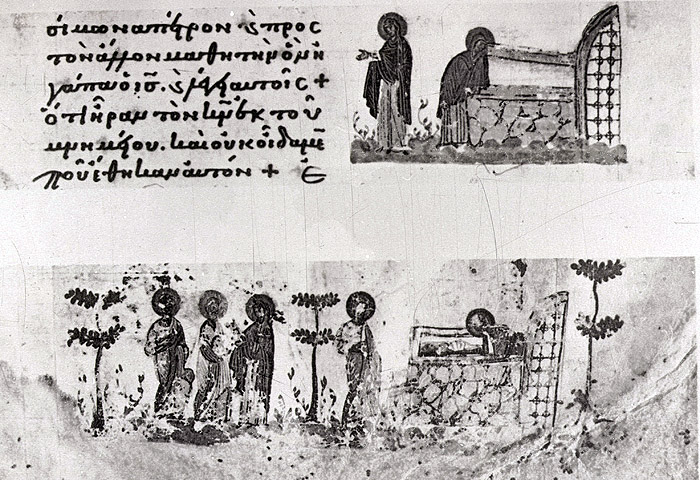 σίμωνα πέτρον· ϗ πρὸς
τὸν ἄλλον μαθητὴν ὃν ἠ
γάπα ὁ ἰς̅. ϗ λέγει αὐτοῖς +
ὅτι ἦραν τὸν κν̅ ἐκ τοῦ
μνημείου. καὶ οὐκ οἴδαμε̅
ποῦ ἔθηκαν αὐτόν +